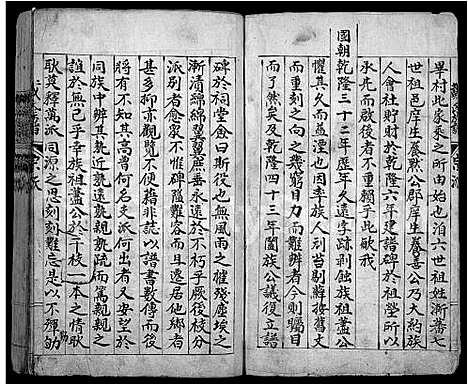 畢村此家乘之所由始也洎六世祖姓漸蕃七
世祖邑庠生蓁懋公郡庠生蓁喜公乃大約族
人會社貯財於乾隆六年建譜碑於祖塋所以
承先志而啟後人者不外乎此歟我
國朝乾隆三十二年歷年久遠字跡剝蝕族祖蓋公
懼其久而益湮也因率族人刮苔剔蘚按舊文
而重刻之向之窮目力而難辨者今則矚目
而了然矣及乾隆四十三年闔族公議復立譜
碑於祠堂僉曰斯役也無風雨之摧殘塵埃之
漸漬綿綿翼翼蔗垂永遠於不朽乎厥後枝分
派別者愈衆不惟碑隘難容而且遷居他鄉者
甚多抑亦觀覽不便若非誌以譜書數傳而後
將有不知高曾何名支派何出者又安望於
同族中辨其孰近孰遠孰親孰疏而篤親親之
誼於無已乎幸族祖蓋公于枝一本之情耿
耿莫釋萬派同源之思刻刻難忘是以不殫劬